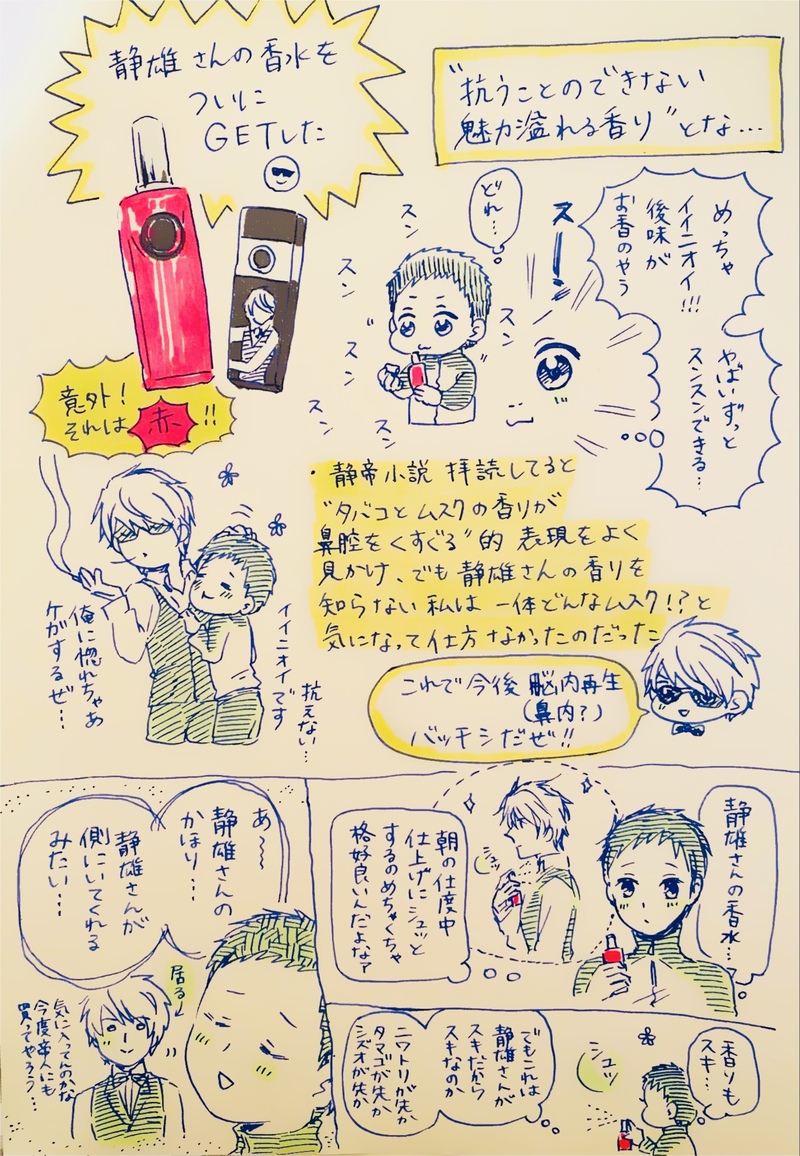 静雄さんの香水を
ついに
GETした
"抗うことのできない
魅力溢れる香り"とな…
どれ…
スン
スン
スン
スン
スン
スン
スー!
めっちゃ
イイニオイ!!!
後味が
お香のやう
やばいずっと
スンスンできる…
意外!
それは赤!!
・静帝小説 拝読してると
"タバコとムスクの香りが
鼻腔をくすぐる"的 表現をよく
見かけ、でも静雄さんの香りを
知らない私は 一体どんなムスク!?と
気になって仕方なかったのだった
俺に惚れちゃあ
ケガするぜ…
イイニオイです
抗えない…
これで今後 脳内再生
(鼻内?)
バッチシだぜ!!
静雄さんの香水…
朝の仕度中
仕上げにシュッと
するのめちゃくちゃ
格好良いんだよな?
香りも
スキ…
シュッ
でもこれは
静雄さんが
スキだから
スキなのか
ニワトリが先か
タマゴが先か
シズオが先か
あ〜〜
静雄さんの
かほり…
静雄さんが
側にいてくれる
みたい…
居る
気に入ってんのかな
今度帝人にも
買ってやろう…